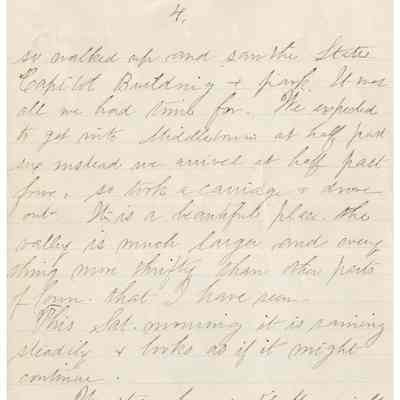 4.
so walked up and saw the State
Capitol Building & park. It was
all we had time for. We expected
to get into Middletown at half past
six instead we arrived at half past
four, so took a carriage & drove
out. It is a beautiful place. the
valley is much larger and every
thing more thrifty than other parts
of Conn. that I have seen.
This Sat. morning it is raining
steadily & looks as if it might
continue.